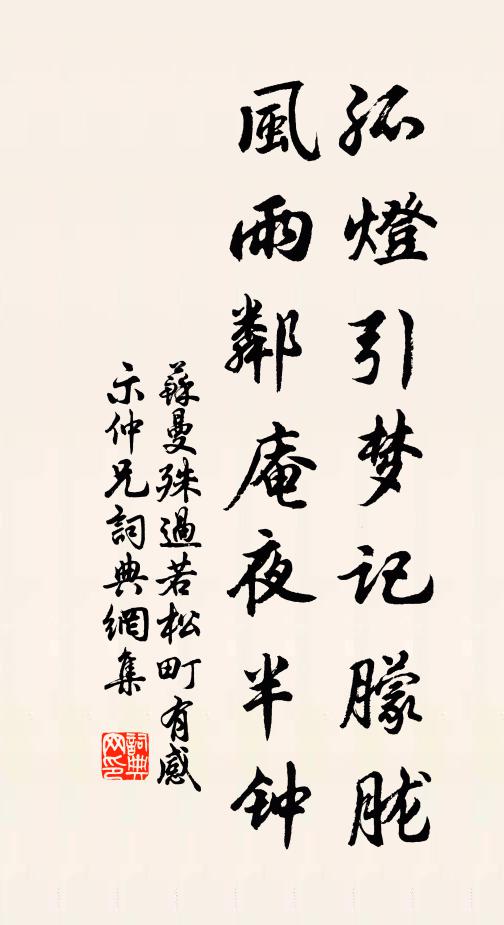 孤燈引梦记朦胧
風雨鄰庵夜半钟
蘇曼殊過若松町有感
示仲兄詞典網集
詞典
网印